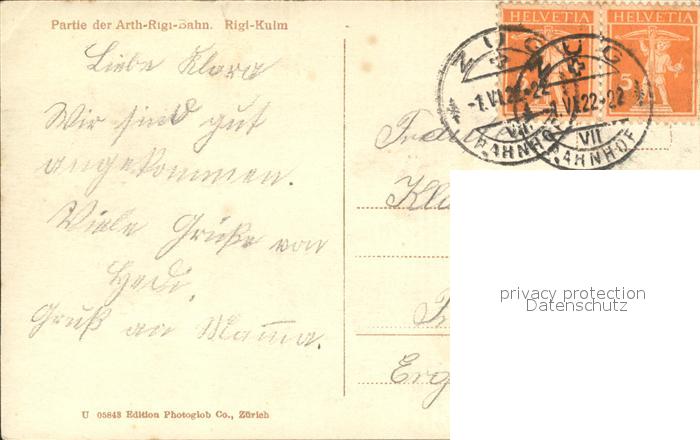 Partie der Arth-Rigi-Bahn. Rigi-Kulm
Liebe Klara
Wir sind gut
angekommen.
Viele Grüße von
Hedi.
Gruß an Mama.
U 05843 Edition Photoglob Co., Zürich
HELVETIA HELVETIA
5
ZUG ZUG
-1.VI.22-22 -1.VI.22-22
VII VII
BAHNHOF BAHNHOF
privacy protection
Datenschutz